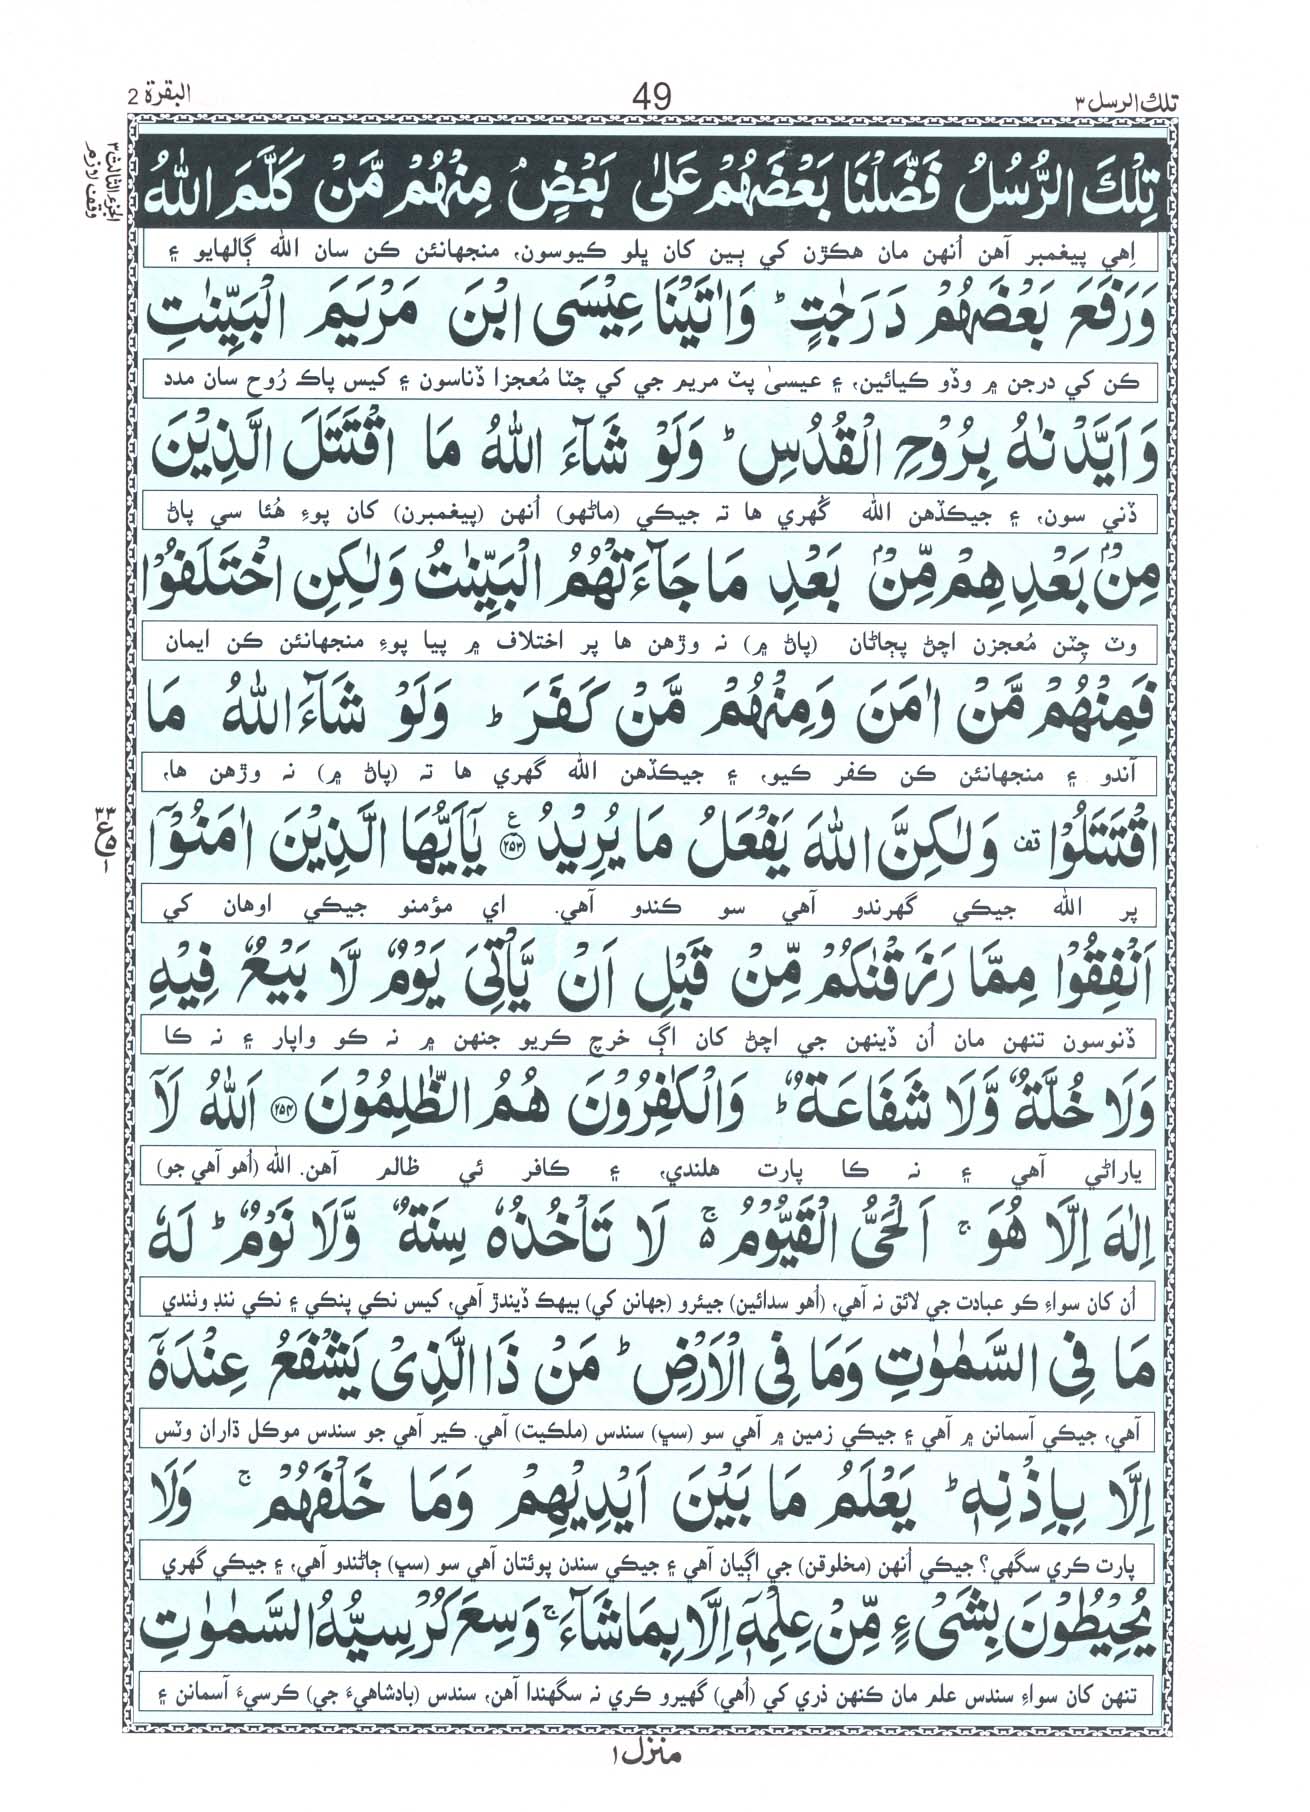 البقرة 2
49
تلك الرسل ٣
الجزء الثالث ٣
وقف لازم
تِلْكَ الرُّسُلُ فَضَّلْنَا بَعْضَهُمْ عَلٰى بَعْضٍ ۘ مِنْهُمْ مَّنْ كَلَّمَ اللّٰهُ
اِهي پيغمبر آهن اُنهن مان هڪڙن کي ٻين کان ڀلو ڪيوسون، منجهانئن ڪن سان الله ڳالهايو ۽
وَرَفَعَ بَعْضَهُمْ دَرَجٰتٍ ؕ وَاٰتَيْنَا عِيْسَى ابْنَ مَرْيَمَ الْبَيِّنٰتِ
ڪن کي درجن ۾ وڏو ڪيائين، ۽ عيسىٰ پٽ مريم جي کي چٽا مُعجزا ڏناسون ۽ کيس پاڪ رُوح سان مدد
وَاَيَّدْنٰهُ بِرُوْحِ الْقُدُسِ ؕ وَلَوْ شَآءَ اللّٰهُ مَا اقْتَتَلَ الَّذِيْنَ
ڏني سون، ۽ جيڪڏهن الله گُھري ها تہ جيڪي (ماڻهو) اُنهن (پيغمبرن) کان پوءِ هُئا سي پاڻ
مِنْۢ بَعْدِهِمْ مِّنْۢ بَعْدِ مَا جَآءَتْهُمُ الْبَيِّنٰتُ وَلٰكِنِ اخْتَلَفُوْا
وٽ چِٽن مُعجزن اچڻ پڄاڻان (پاڻ ۾) نہ وڙهن ها پر اختلاف ۾ پيا پوءِ منجهانئن ڪن ايمان
فَمِنْهُمْ مَّنْ اٰمَنَ وَمِنْهُمْ مَّنْ كَفَرَ ؕ وَلَوْ شَآءَ اللّٰهُ مَا
آندو ۽ منجهانئن ڪن ڪفر ڪيو، ۽ جيڪڏهن الله گھري ها تہ (پاڻ ۾) نہ وڙهن ها،
٣٣
ع
٥
١
اقْتَتَلُوْا قف وَلٰكِنَّ اللّٰهَ يَفْعَلُ مَا يُرِيْدُ ﴿۲۵۳﴾ ع يٰۤاَيُّهَا الَّذِيْنَ اٰمَنُوْۤا
پر الله جيڪي گھرندو آهي سو ڪندو آهي. اي مؤمنو جيڪي اوهان کي
اَنْفِقُوْا مِمَّا رَزَقْنٰكُمْ مِّنْ قَبْلِ اَنْ يَّاْتِيَ يَوْمٌ لَّا بَيْعٌ فِيْهِ
ڏنوسون تنهن مان اُن ڏينهن جي اچڻ کان اڳ خرچ ڪريو جنهن ۾ نہ ڪو واپار ۽ نہ ڪا
وَلَا خُلَّةٌ وَّلَا شَفَاعَةٌ ؕ وَالْكٰفِرُوْنَ هُمُ الظّٰلِمُوْنَ ﴿۲۵۴﴾ اَللّٰهُ لَاۤ
ياراڻي آهي ۽ نہ ڪا پارت هلندي، ۽ ڪافر ئي ظالم آهن. الله (اُهو آهي جو)
اِلٰهَ اِلَّا هُوَ ۚ اَلْحَيُّ الْقَيُّوْمُ ۬ۚ لَا تَاْخُذُهٗ سِنَةٌ وَّلَا نَوْمٌ ؕ لَهٗ
اُن کان سواءِ ڪو عبادت جي لائق نہ آهي، (اُهو سدائين) جيئرو (جهانن کي) بيهڪ ڏيندڙ آهي، کيس نڪي پنڪي ۽ نڪي ننڊ وٺندي
مَا فِي السَّمٰوٰتِ وَمَا فِي الْاَرْضِ ؕ مَنْ ذَا الَّذِيْ يَشْفَعُ عِنْدَهٗۤ
آهي، جيڪي آسمانن ۾ آهي ۽ جيڪي زمين ۾ آهي سو (سڀ) سندس (ملڪيت) آهي. ڪير آهي جو سندس موڪل ڌاران وٽس
اِلَّا بِاِذْنِهٖ ؕ يَعْلَمُ مَا بَيْنَ اَيْدِيْهِمْ وَمَا خَلْفَهُمْ ۚ وَلَا
پارت ڪري سگهي؟ جيڪي اُنهن (مخلوقن) جي اڳيان آهي ۽ جيڪي سندن پوئتان آهي سو (سڀ) ڄاڻندو آهي، ۽ جيڪي گھري
يُحِيْطُوْنَ بِشَيْءٍ مِّنْ عِلْمِهٖۤ اِلَّا بِمَا شَآءَ ۚ وَسِعَ كُرْسِيُّهُ السَّمٰوٰتِ
تنهن کان سواءِ سندس علم مان ڪنهن ذري کي (اُهي) گهيرو ڪري نہ سگهندا آهن، سندس (بادشاهيءَ جي) ڪرسيءَ آسمانن ۽
منزل ١